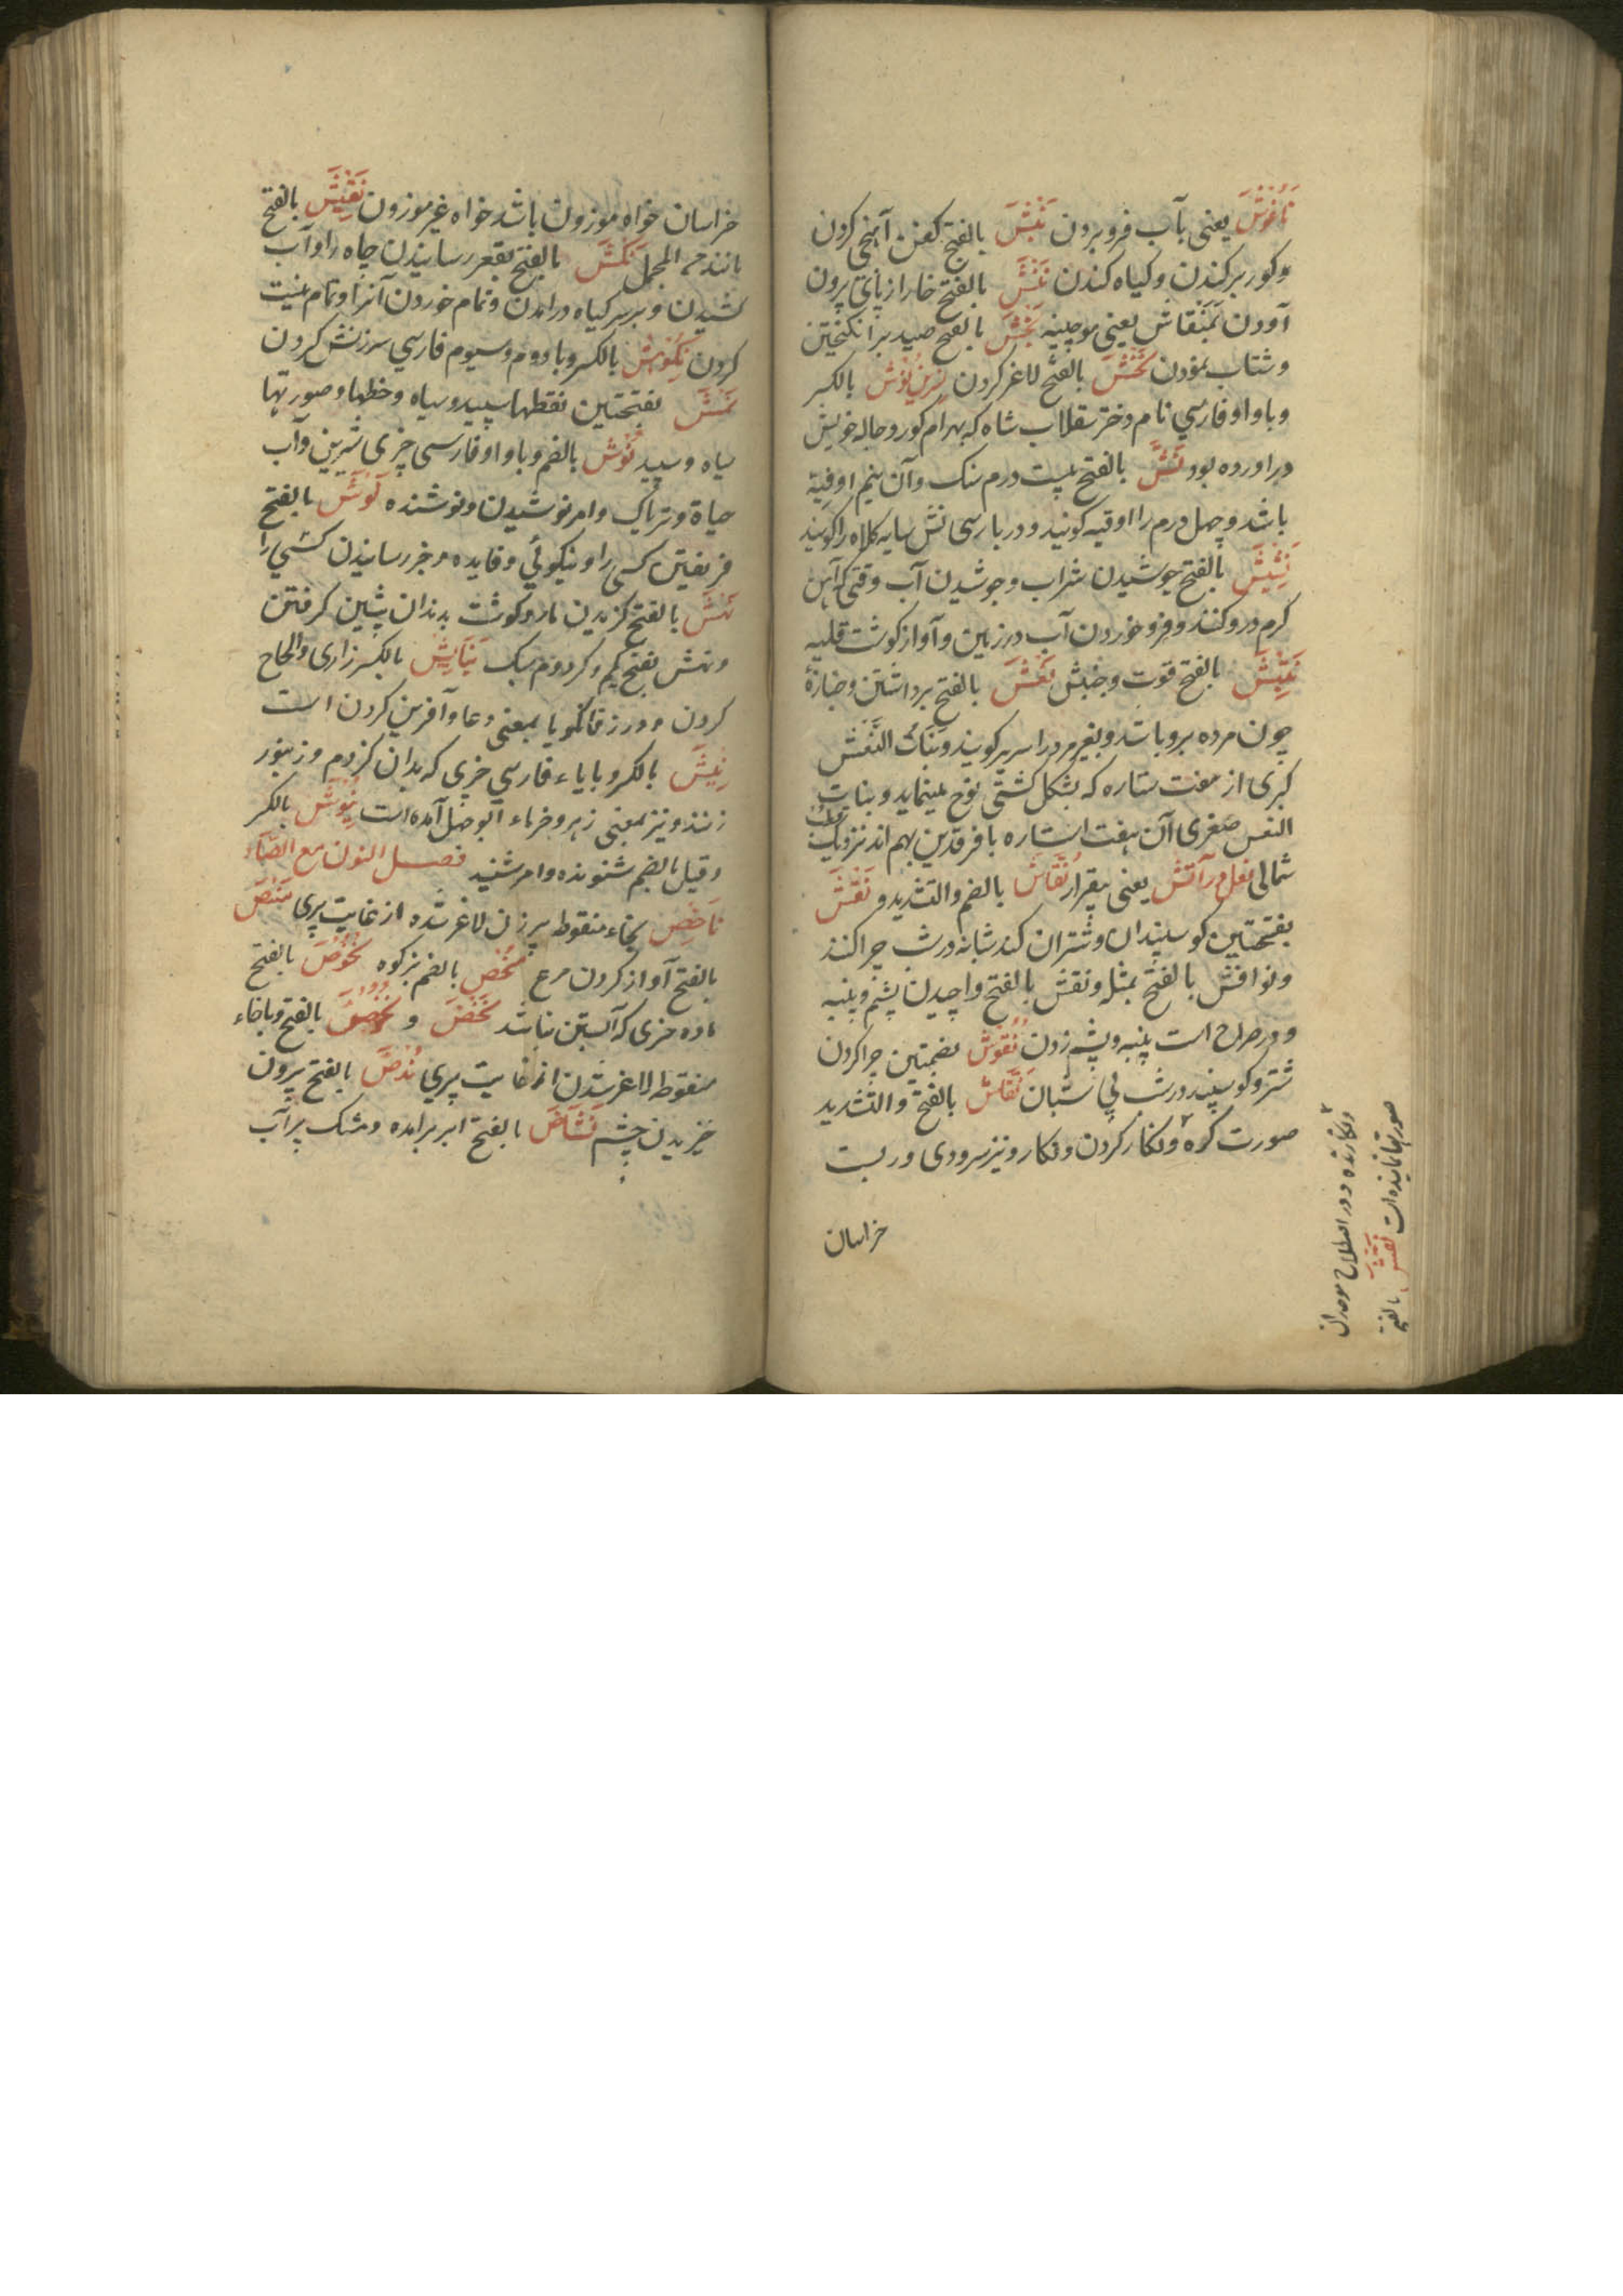 ناغوش یعنی بآب فرو بردن نَبْشَ بالفتح کفن آهنجی کردن
و کور برکندن و کیاه کندن نَتْشَ بالفتح خار از پای برون
آوردن بمنقاش یعنی موچینه نَجْشَ بالفتح صید برانکیختن
و شتاب نمودن نَخْشَ بالفتح لاغر کردن نرین نوش بالکسر
و با واو فارسی نام دختر سقلاب شاه که بهرام کور در حاله خویش
در اورده بود نَشَّ بالفتح بیست درم سنک و آن نیم اوقیه
باشد و چهل درم را اوقیه کویند و در پارسی نش سایه کلاه را کویند
نَشِیشَ بالفتح جوشیدن شراب و جوشیدن آب وقتی که آهن
کرم درو کنند و فرو خوردن آب در زمین و آواز کوشت قلیه
بالفتح قوت و جنبش نَعْشَ بالفتح برداشتن و جنازه
چون مرده برو باشد و بغیر مرده را سریر کویند و بنات النَّعْش
کبری از هفت ستاره که بشکل کشتی نوح مینماید و بنات
النعش صغری آن هفت استاره با فرقدین بهم اند نزدیک قطب
شمالی نعل در آتش یعنی بیقرار نُفّاش بالضم والتشدید و نَفَشَ
بفتحتین کوسپندان و شتران کند شبانه در شب چرا کنند
و نوافش بالفتح بمثله و نفش بالفتح واچیدن پشم و پنبه
و در صراح است پنبه و پشم زدن نُفُوشَ بضمتین چرا کردن
شتر و کوسپند در شب بی شبان نَقّاش بالفتح والتشدید
صورت کره و نکار کردن و نکار و نیز سرودی در بست
خراسان
و نکارنده و در اصطلاح موحدان
صورتها نماینده است نقش بالفتح
خراسان خواه موزون باشد خواه غیر موزون نَقِیشَ بالفتح
مانند من المجمل نَکْشَ بالفتح بقعر رسانیدن چاه را و آب
کشیدن و بر سر کیاه درامدن و تمام خوردن آنرا و تمام نیست
کردن نِکوهش بالکسر و با دوم و سیوم فارسی سرزنش کردن
نَمَشَ بفتحتین نقطها سپید و سیاه و خطها و صورتها
سیاه و سپید نُوش بالضم و با واو فارسی چیزی شیرین و آب
حیاة و تریاک و امر نوشیدن و نوشنده نَوْشَ بالفتح
فریفتن کسی را و نیکوئی و فایده و خبر رسانیدن کسی را
نَهْشَ بالفتح کزیدن مار و کوشت بدندان پیشین کرفتن
و نهش بفتح یکم و کر دوم سبک نِیَایِش بالکسر زاری و الحاح
کردن و در زفانکویا بمعنی دعا و آفرین کردن است
نِیشَ بالکسر و با یاء فارسی چیزی که بدان کزدم و زنبور
زنند و نیز بمعنی زهر و خرماء ابو جهل آمده است نِیُوشَ بالکسر
و قیل بالضم شنونده و امر شنید فصل النون مع الصّاد
نَاخِص بخاء منقوطه پیر زن لاغر شده از غایت پیری نَبْصَ
بالفتح آواز کردن مرغ نُحْص بالضم بز کوه نَحُوصَ بالفتح
ماده خری که آبستن نباشد نَخْصَ و نُخُوصَ بالفتح و با خاء
منقوطه لاغر شدن از غایت پیری نُدُصَّ بالفتح برون
خزیدن چشم نَشَاصَ بالفتح ابر برامده و مشک پر آب